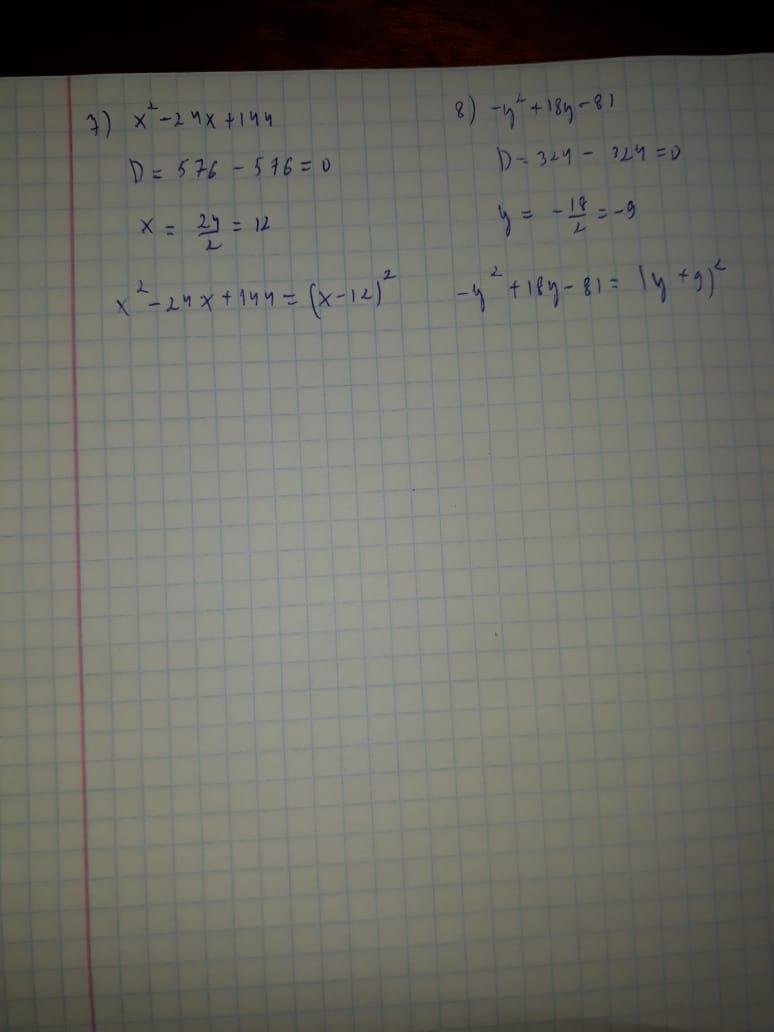 7) x² - 24x + 144
D = 576 - 576 = 0
x = 24/2 = 12
x² - 24x + 144 = (x - 12)²
8) -y² + 18y - 81
D = 324 - 324 = 0
y = -18/2 = -9
-y² + 18y - 81 = (y + 9)²